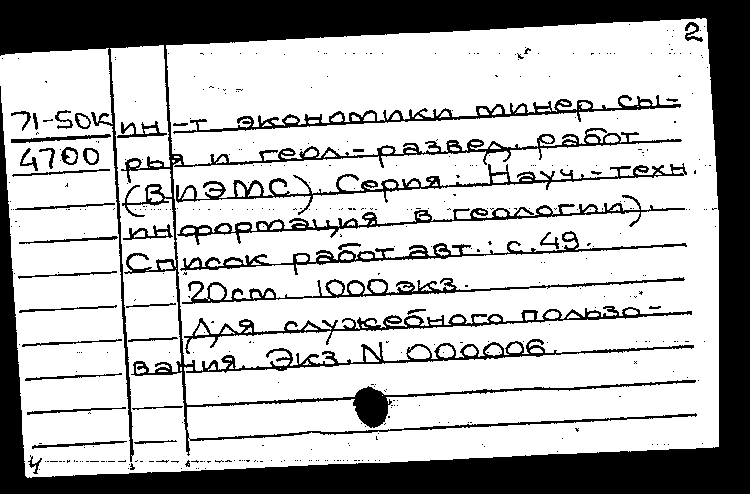 2
71-50К ин-т экономики минер. сы-
4700 рья и геол.-развед. работ
(ВИЭМС). Серия: Науч.-техн.
информация в геологии).
Список работ авт.: с. 49.
20см. 1000 экз.
Для служебного пользо-
вания. Экз. N 000006.
ч